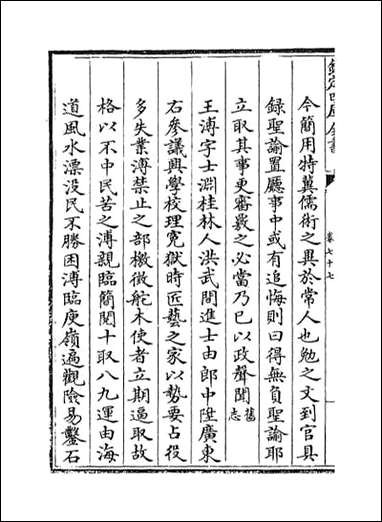 欽定四庫全書
卷七十七
今簡用特冀儒術之異於常人也勉之文到官具
錄聖諭置廳事中或有追悔則曰得無負聖諭耶
立取其事更審覈之必當乃已以政聲聞舊志
王溥字士淵桂林人洪武間進士由郎中陞廣東
右參議興學校理冤獄時匠藝之家以勢要占役
多失業溥禁止之部檄徵舵木使者立期逼取故
格以不中民苦之溥親臨簡閱十取八九運由海
道風水漂没民不勝困溥臨庾嶺遍觀險易鑿石